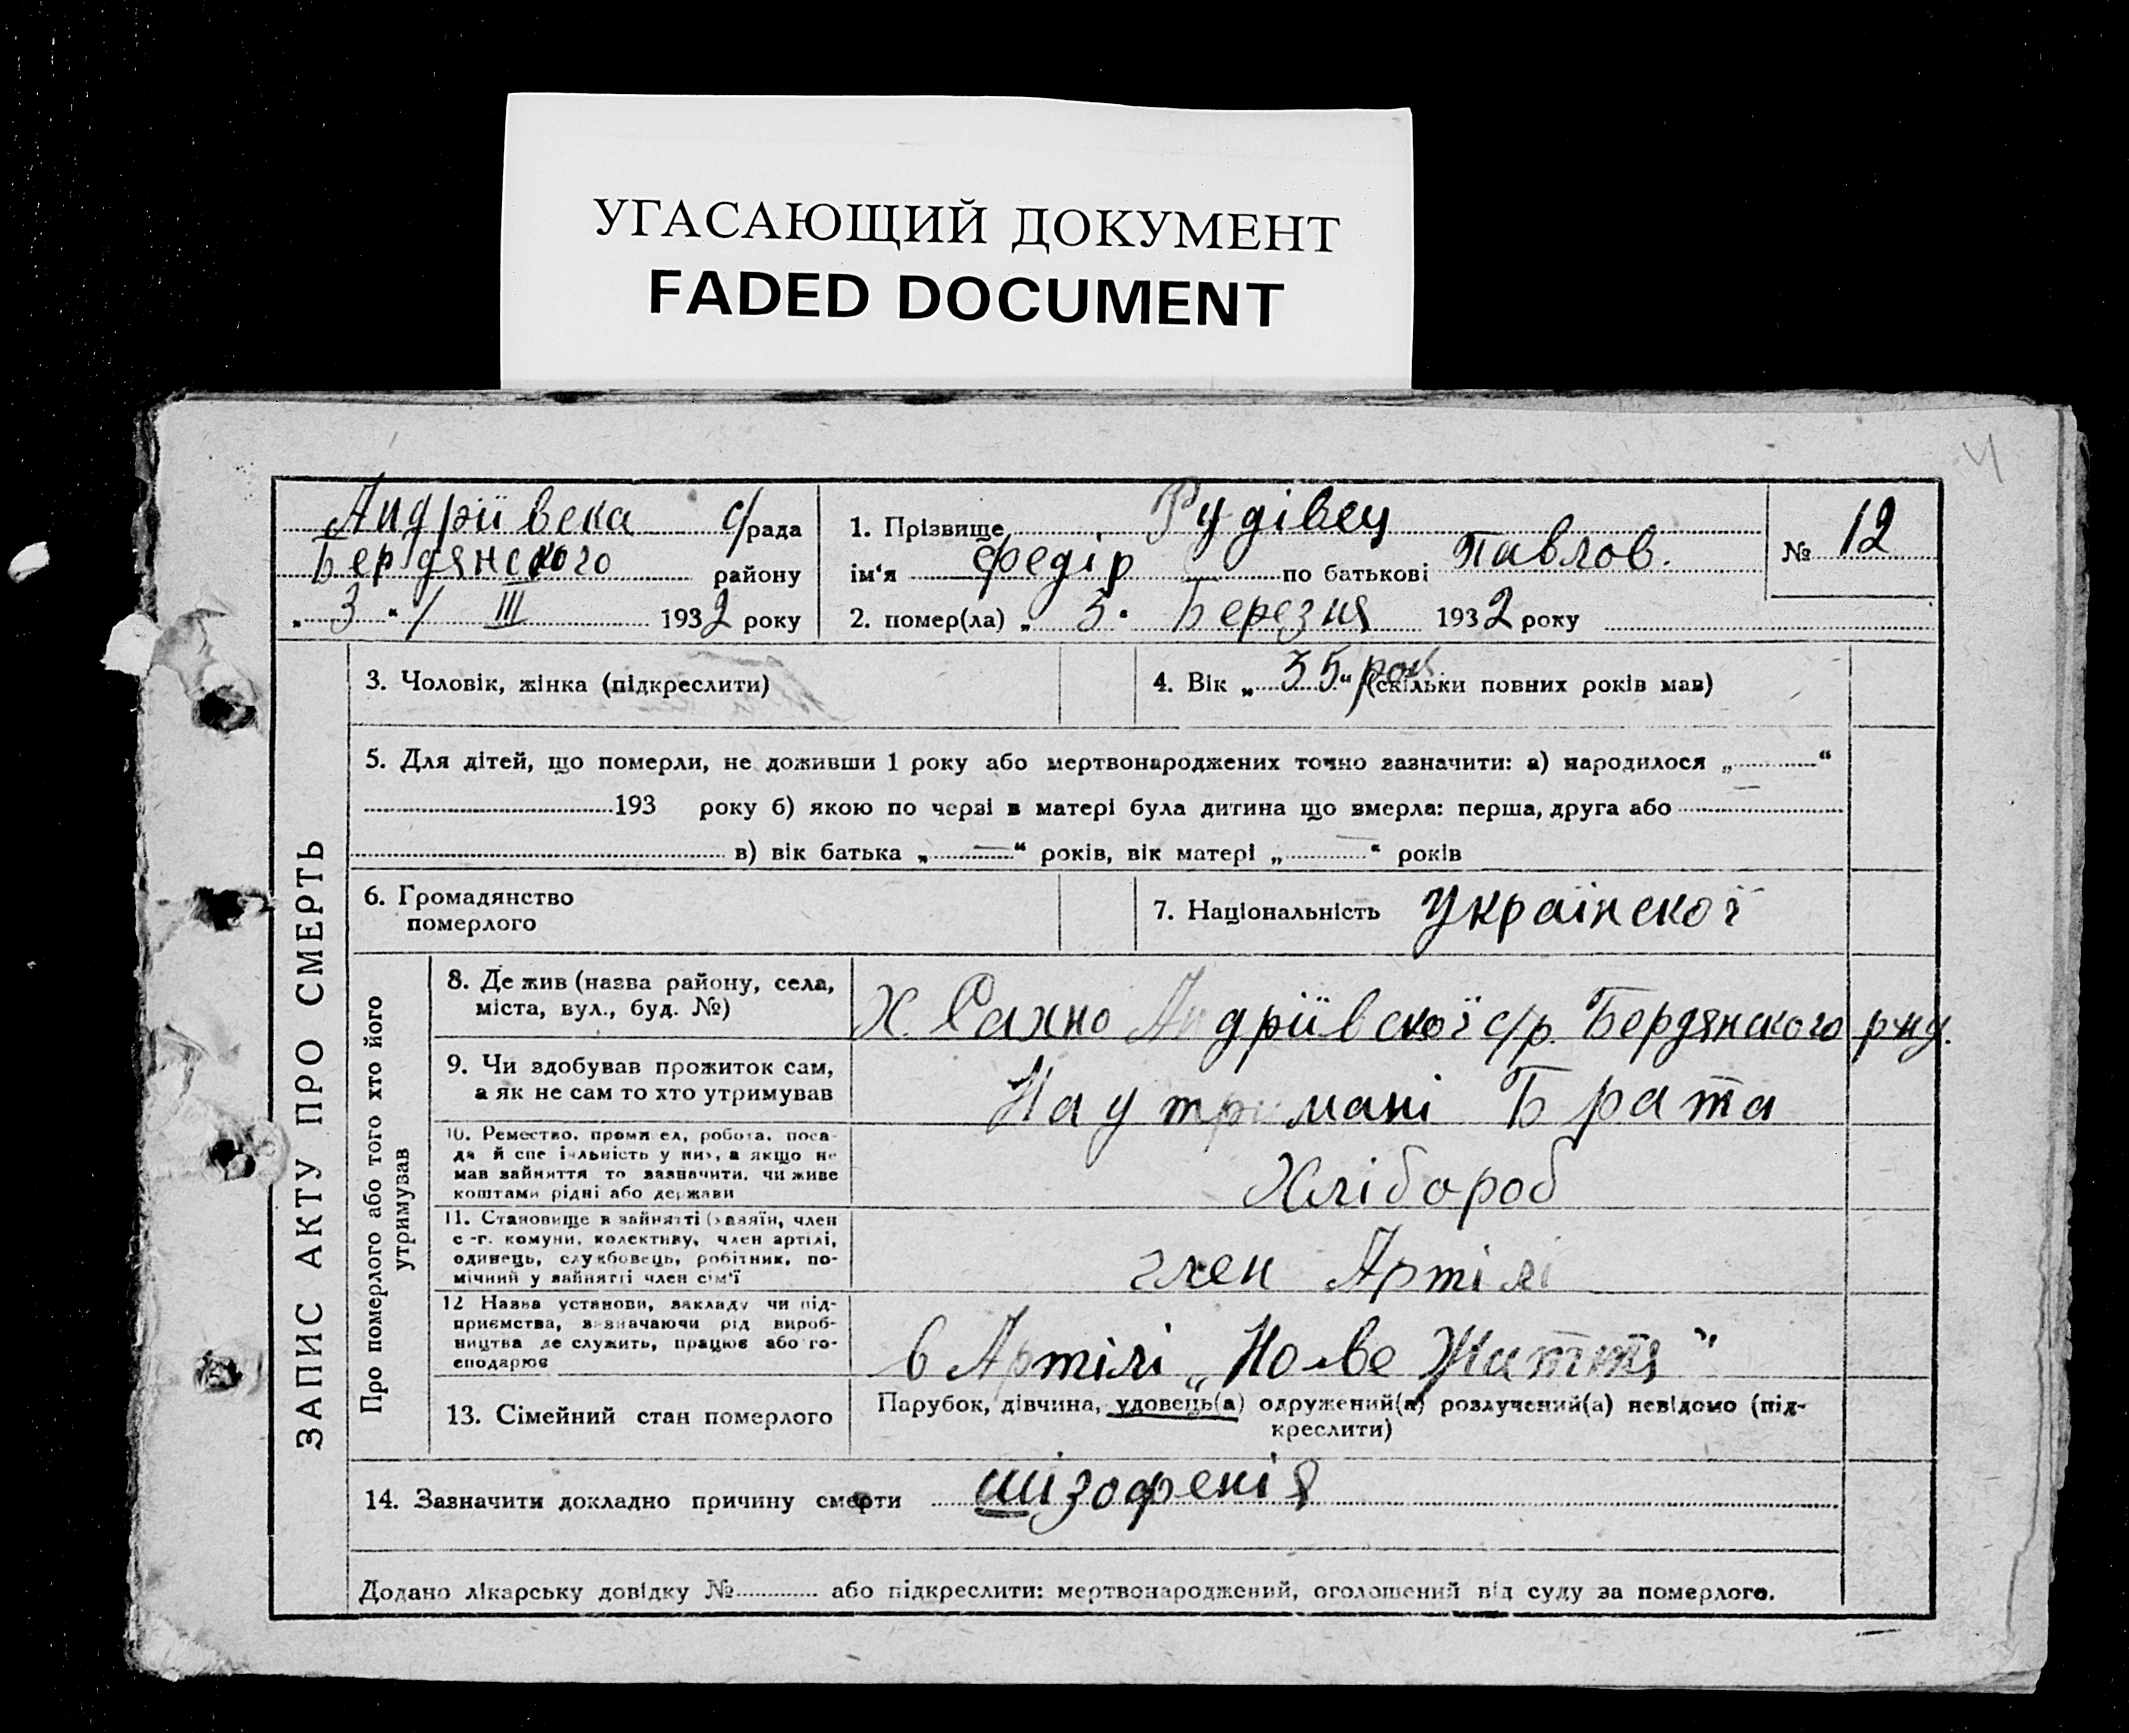 УГАСАЮЩИЙ ДОКУМЕНТ
FADED DOCUMENT
Ч
Андріївска с/рада
Бердянского району
„3“ / III 1932 року
1. Прізвище Рудівец
ім‘я Федір по батькові Павлов.
2. помер(ла) „3“ Березня 1932 року
№ 12
ЗАПИС АКТУ ПРО СМЕРТЬ
3. Чоловік, жінка (підкреслити)
4. Вік „35“ рок (скільки повних років мав)
5. Для дітей, що померли, не доживши 1 року або мертвонароджених точно зазначити: а) народилося „ “
193 року б) якою по черзі в матері була дитина що вмерла: перша, друга або —
в) вік батька „—“ років, вік матері „—“ років
6. Громадянство
померлого
7. Національність Українскої
Про померлого або того хто його
утримував
8. Де жив (назва району, села,
міста, вул., буд. №)
Х. Сахно Андріївскої с/р. Бердянского р-ну.
9. Чи здобував прожиток сам,
а як не сам то хто утримував
На утримані Брата
10. Ремество, промисел, робота, поса-
да й спеціяльність у них, а якщо не
мав зайняття то зазначити, чи живе
коштами рідні або держави
Хлібороб
11. Становище в зайнятті (хазяїн, член
с.-г. комуни, колективу, член артілі,
одинець, службовець, робітник, по-
мічний у зайнятті член сім‘ї
член Артілі
12 Назва установи, закладу чи під-
приємства, визначаючи рід вироб-
ництва де служить, працює або го-
сподарює
в Артілі „Нове Життя“
13. Сімейний стан померлого
Парубок, дівчина, удовець(а) одружений(а) розлучений(а) невідомо (під-
креслити)
14. Зазначити докладно причину смерти шізофенія
Додано лікарську довідку № або підкреслити: мертвонароджений, оголошений від суду за померлого.